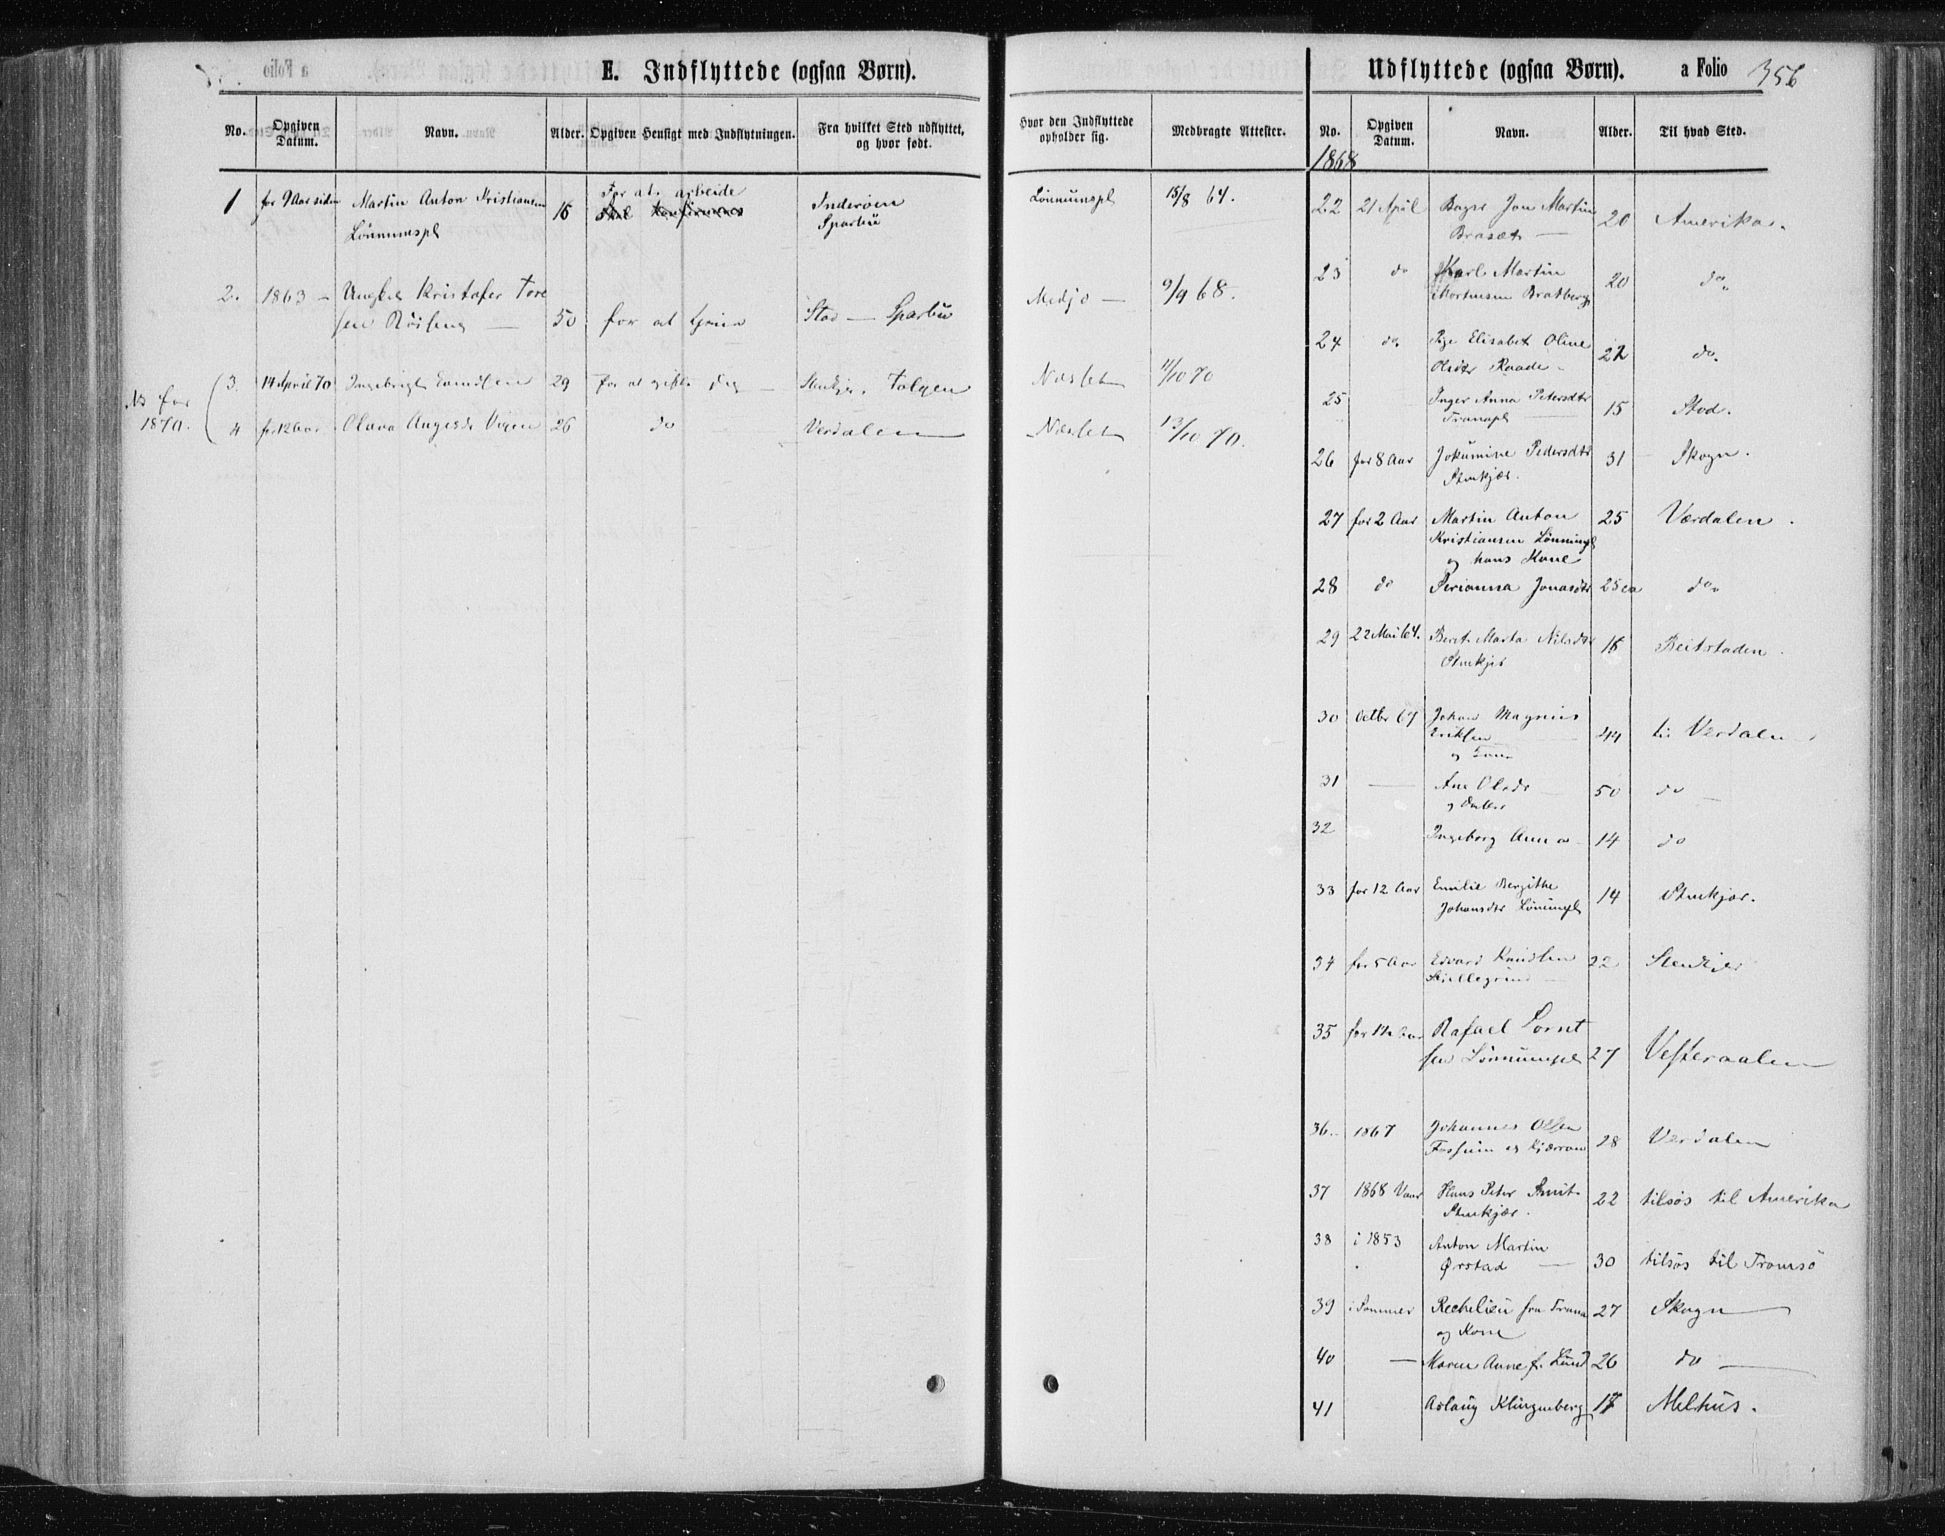 E. Indflyttede (ogsaa Børn).
No.
Opgiven Datum.
Navn.
Alder.
Opgiven Hensigt med Indflytningen.
Fra hvilket Sted udflyttet, og hvor født.
Hvor den Indflyttede opholder sig.
Medbragte Attester.
1 for 9 Aar siden Martin Anton Kristiansen 16 For at arbeide Inderøen Lønnumspl 18/8 64.
Lønnumspl Sparbu
2. 1863 – Ungkarl Kristofer Tore
sen 50 for at tjene Stod — Sparbu Medjo — 9/9 68.
No for 1870.
3. 14 April 70 Ingebrigt 29 for at gifte sig Stenkjer, Tolgen Næsset 11/10 70
4 for 12 Aar Olava 26 do Verdalen Næsset 13/10 70.
Udflyttede (ogsaa Børn).
a Folio 356
No.
Opgiven Datum.
Navn.
Alder.
Til hvad Sted.
1868
22 21 April Jon Martin
Brasæt — 20 Amerika.
23 do Karl Martin
Mortensen Bratberg 20 do.
24 do. Pige Elisabet Oline
Olsdtr Raade. 22 do.
25 Inger Anna Petersdtr
Tranapl 15 Stod.
26 for 8 Aar Jokumine Pedersdtr 31 Skogn.
Stenkjær.
27 for 2 Aar Martin Anton 25 Værdalen.
Kristiansen Lønnumspl
og hans Kone
28 do Perianna Jonasdtr 25 ca do.
29 22 Mai 64. Beret Marta Nilsdtr 16 Beitstaden.
Stenkjer
30 Octbr 67 Johan Magnus
Eriksen 44 til Verdalen
og Kone
31 — Ane Olsdr — 50 do —
og Datter
32 Ingeborg Anna 14 do
33 for 12 Aar Emilie Bergithe
Johansdtr Lønnumspl 14 Stenkjær.
34 for 5 Aar Edvard Knudsen 22 Stenkjer
35 for 12 Aar Rafael Lornt
sen Lønnumspl 27 Vesteraalen
36. 1867 Johannes Olsen
Fossum 28 Verdalen
37 1868 Vaar Hans Peter Smit 22 tilsøs til Amerika
Stenkjær.
38 i 1853 Anton Martin
Ørstad — 30 tilsøs til Tromsö
39 i Sommer fra Trana 27 Skogn
og Kone
40 — Maren Anne f. Lund 26 do —
41 Aslaug Klingenberg 17 Melhus.